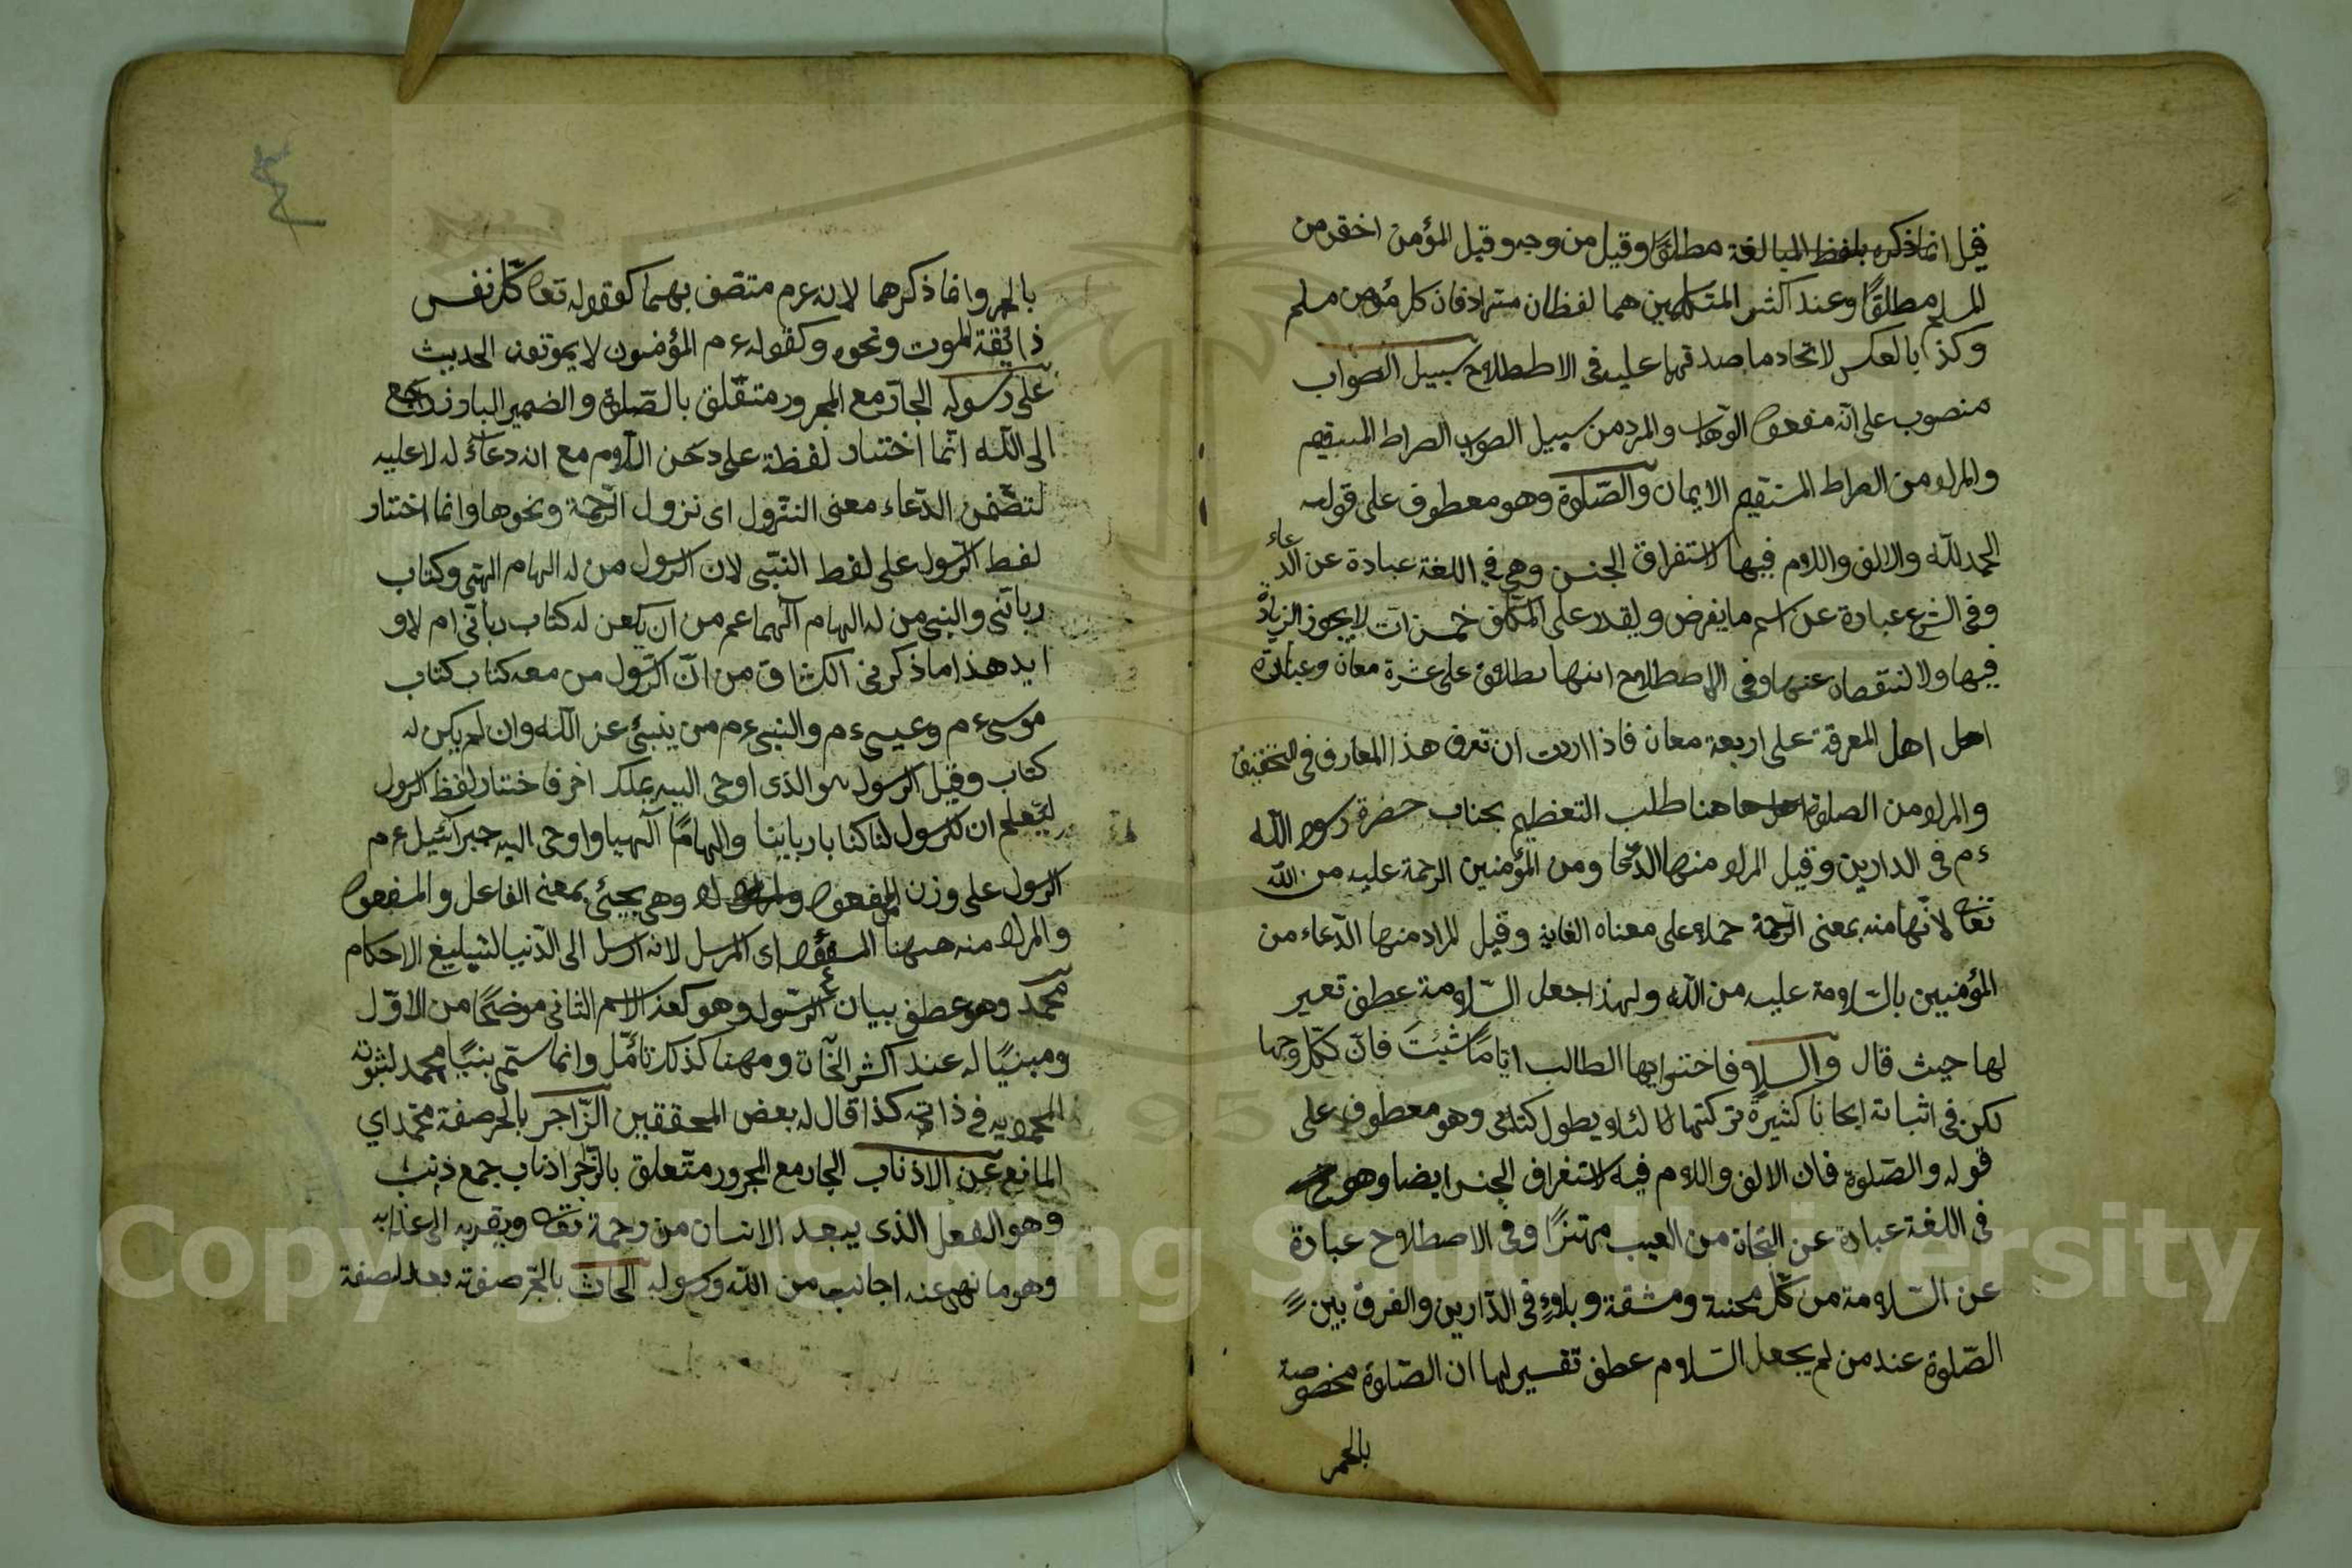 قيل انما ذكره بلفظ المبالغة مطلقا وقيل من وجه وقيل المؤمن اخقر من
المسلم مطلقًا وعند اكثر المتكلمين هما لفظان مترادفان كل مؤمن مسلم
وكذا بالعكس لاتحاد ما صدقهما عليه فى الاصطلاح سبيل الصواب
منصوب على انّه مفعول الوهاب والمرد من سبيل الصواب الصراط المستقيم
والمراد من الصراط المستقيم الايمان والصّلوة وهو معطوف على قوله
الحمد للّه والالف واللام فيها لاستغراق الجنس وهى في اللغة عبادة عن الدعاء
وفى الشرع عبادة عن اسم ما يفرض ويقدر على المكلّف خمس مرات لا يجوز الزيادة
فيها ولا لنتقصان عنها وفى الاصطلاح انها يطلاق على عشرة معان وعبادة
اهل اهل المعرفة على اربعة معان فاذا اردت ان تعرف هذا المعارف فى التحقيق
والمراد من الصلوة هاهنا طلب التعظيم بجناب حضرة رسول اللّه
ءم فى الدارين وقيل المراد منها الدّعا ومن المؤمنين الرحمة عليه من اللّه
تعالى لانّها منه بمعنى الرّحمة حملا على معناه الغاية وقيل المراد منها الدّعاء من
المؤمنين بالسّلامة عليه من اللّه ولهذا جعل السّلامة عطف تعير
لها حيث قال والسلام فاختر ايها الطالب اتا ما شئِتَ فانّ لكلّ وجها
لكن فى اثباته ابحاثا كثيرةً تركتها لئلا يطول كتابى وهو معطوف على
قوله والصّلوة فان الالف واللام فيه لاستغراق الجنس ايضا وهو
فى اللغة عبادة عن النجاة من العيب مهتزًا وفى الاصطلاح عبادة
عن السّلامة من كلّ محنة ومشقة وبلاءٍ فى الدّارين والفرق بين
الصّلوة عند من لم يجعل السّلام عطف تفسير لها ان الصّلوة مخصوصة
بالحمر
بالحمر وانما ذكرهما لانه عرم متصّف بهما كقوله تعا كلّ نفس
ذائقة الموت ونحوه وكقوله ءم المؤمنون لا يموتون الحديث
على رسوله الجارّ مع المجرور متعّلق بالصّلوة والضمير البارز راجع
الى اللّه انّما اختار لفظة على دحن اللّام مع انه دعاءٌ له لا عليه
لتضّمن الدّعاء معنى النّزول اى نزول الرّحمة ونحوها وانما اختار
لفط الرّسول على لفط النبّى لان الرّسول من له الهام الهتى وكتاب
ربانّى والنبى من له الهام الّهما عم من ان يكعن له كتاب ربانّى ام لا و
ايد هذا ما ذكر فى الكشاف من انّ الرّسول من معه كتاب كتاب
موسى ءم وعيسى ءم والنبى ءم من ينبئ عن اللّه وان لم يكن له
كتاب وقيل الرسول هو الذى اوحى اليه بملك اخر فاختار لفظ الرسول
ليّعلم ان لرسول لنا كتابا ربانيا والهامًا الّهيا واوحى اليه جبرائيل ءم
الرسول على وزن المفعول وهى يجيئ بمعنى الفاعل والمفعول
والمراد منه ههنا المفعول اى المرسل لانه ارسل الى الدّنيا لتبليغ الاحكام
محّمد وهو عطف بيان الرّسول وهو كعذ الاسم الثانى موضحًا من الاوّل
ومبنيًا له عند اكثر النّحاة ومهنا كذلك تامّل وانما ستمى بنيًا محمد لثبوته
المحمودية فى ذاته كذا قال له بعض المحققين الزّاجر بالجر صفة محّمد اي
المانع عن الاذناب الجار مع المجرور متّعلق بالزّاجر اذناب جمع ذنب
وهو الفعل الذى يبعد الانسان من رحمة تعا ويقربه الى عذابه
وهو ما نهى عنه اجانب من اللّه ورسوله الحاثّ بالجّر صفته بعد لصفة